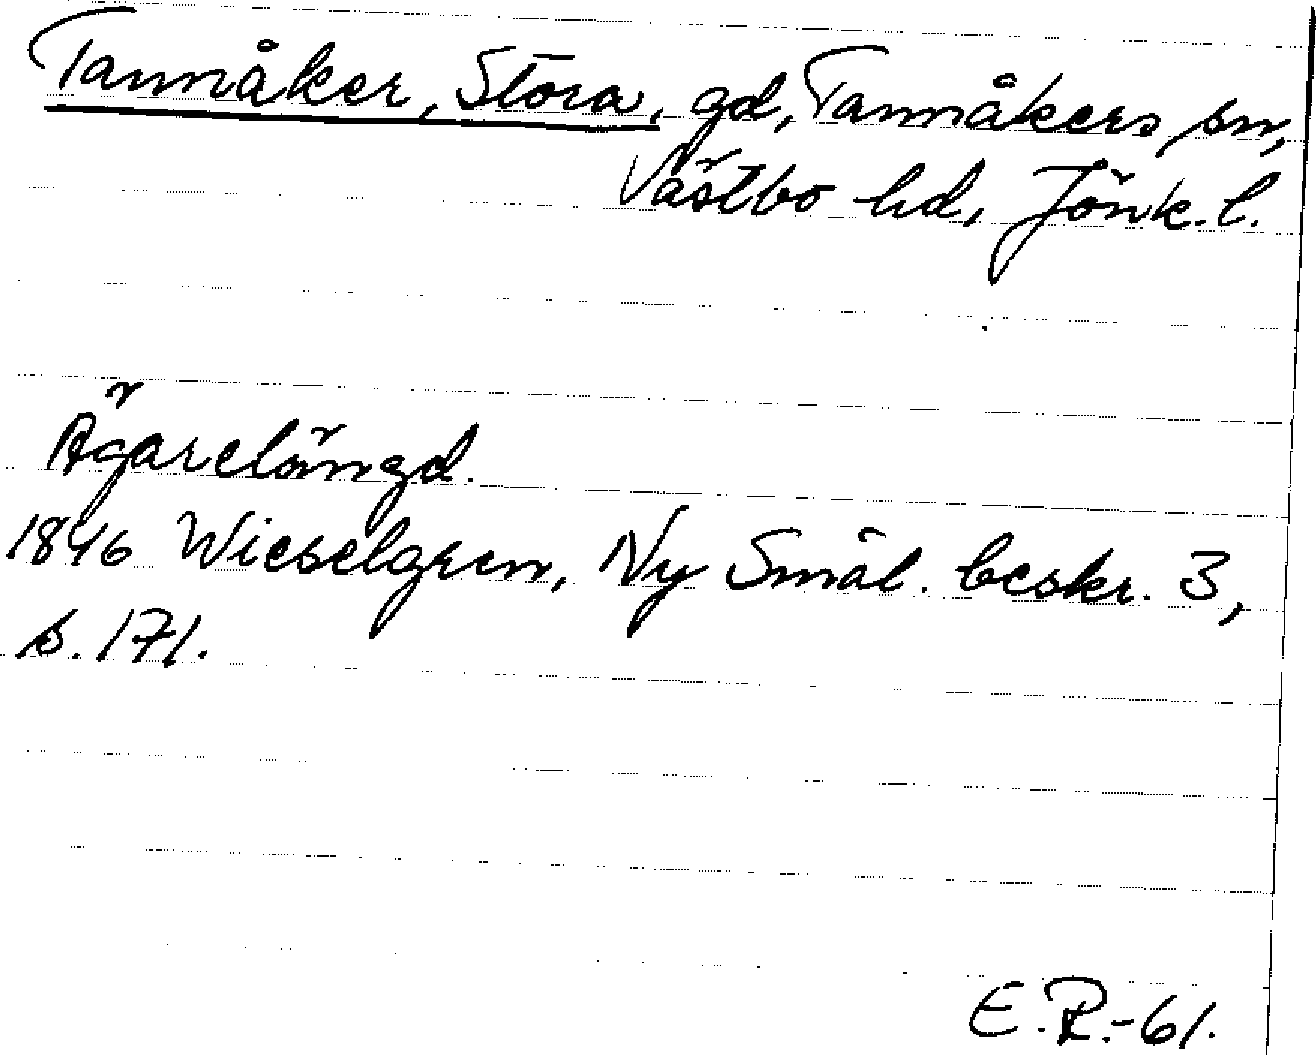 Tannåker, Stora, gd, Tannåkers sn,
Västbo hd, Jönk. l.
Ägarelängd.
1846 Wieselgren, Ny Smål. beskr. 3,
s. 171.
E.R.-61.